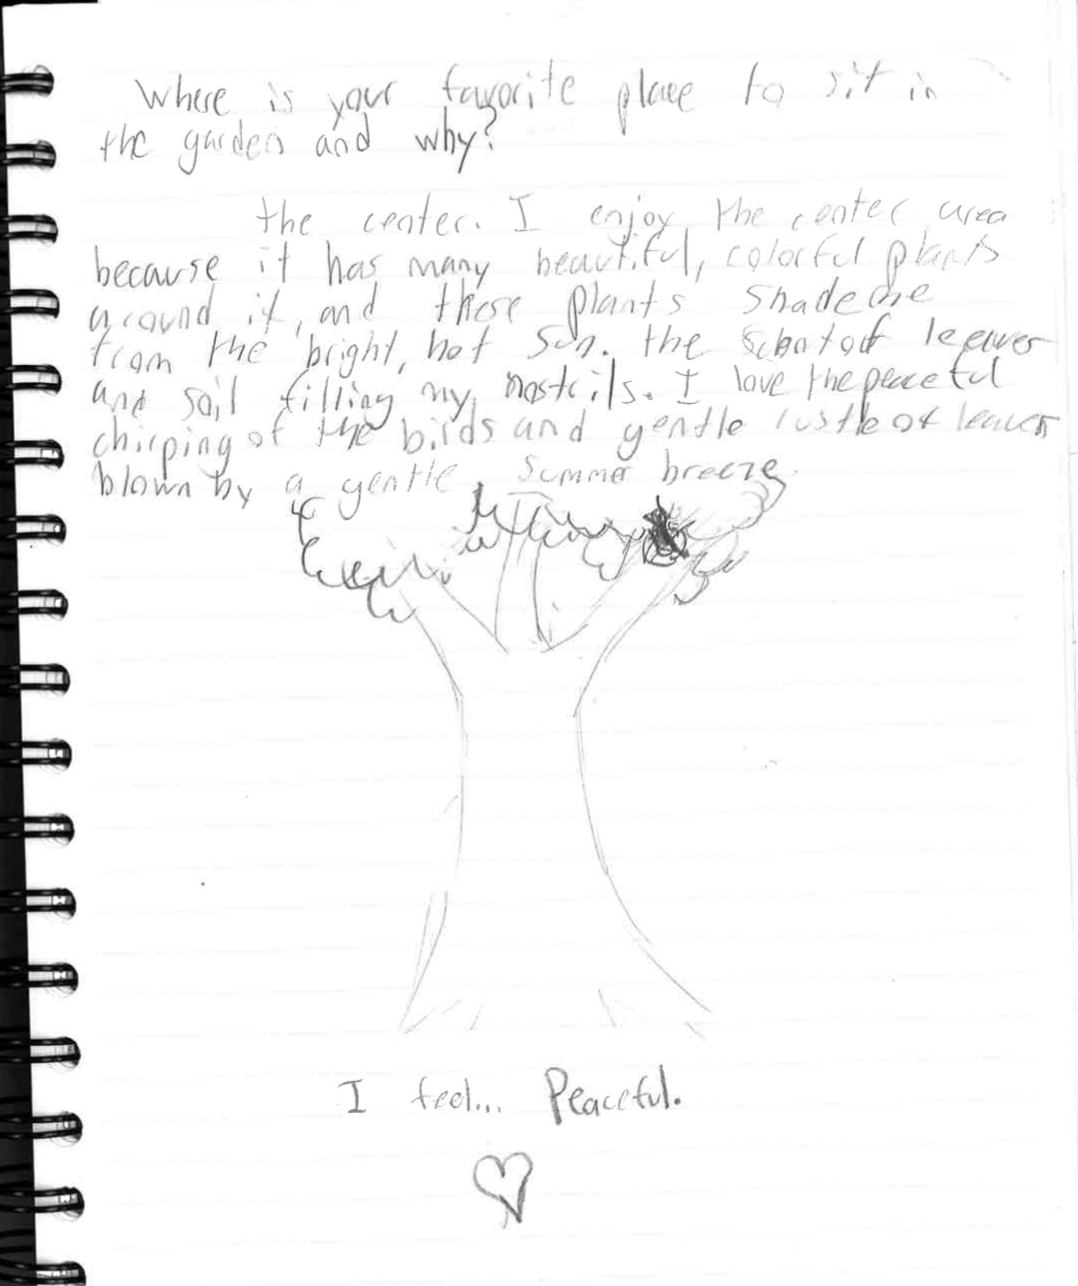 Where is your favorite place to sit in
the garden and why?
the center. I enjoy the center area
because it has many beautiful, colorful plants
around it, and these plants shade me
from the bright, hot sun. the of leaves
and soil filling my nostrils. I love the peaceful
chirping of the birds and gentle rustle of leaves
blown by a gentle summer breeze.
I feel... Peaceful.